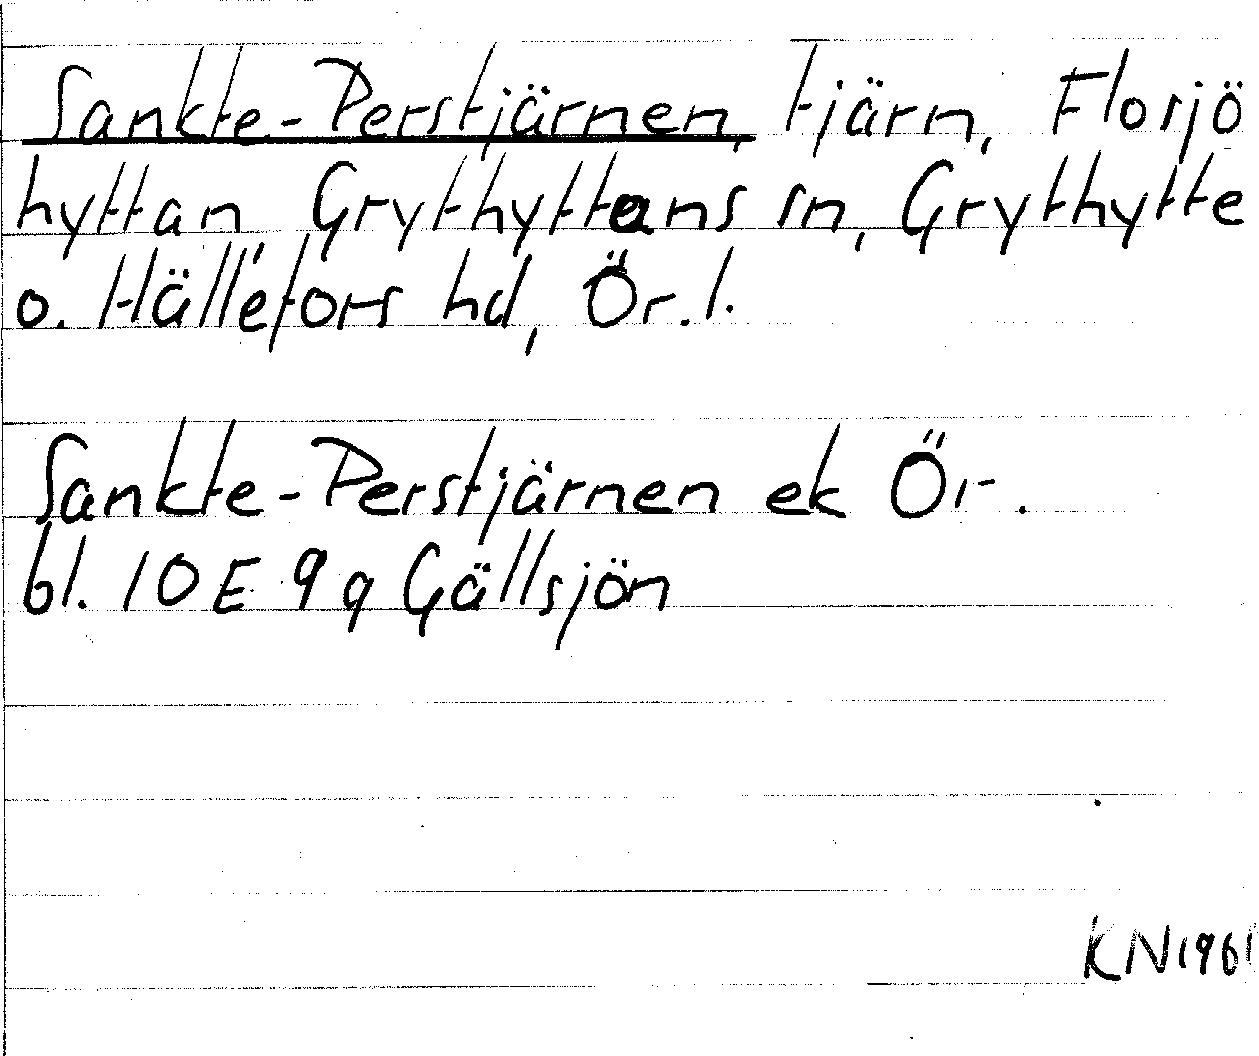 Sankte-Perstjärnen, tjärn, Florsjö
hyttan, Grythyttans sn, Grythytte
o. Hällefors hd, Ör.l.
Sankte-Perstjärnen ek Ör.
bl. 10 E 9 g Gällsjön
KN 1961